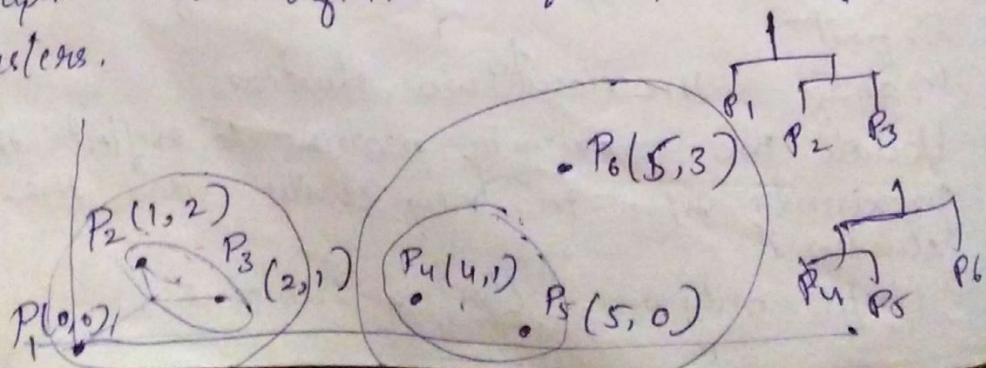 usters.
P1
P2 P3
P6(5,3)
P2(1,2)
P3 (2,1)
P4(4,1)
P5 (5,0)
P1(0,0)
P4 P5 P6